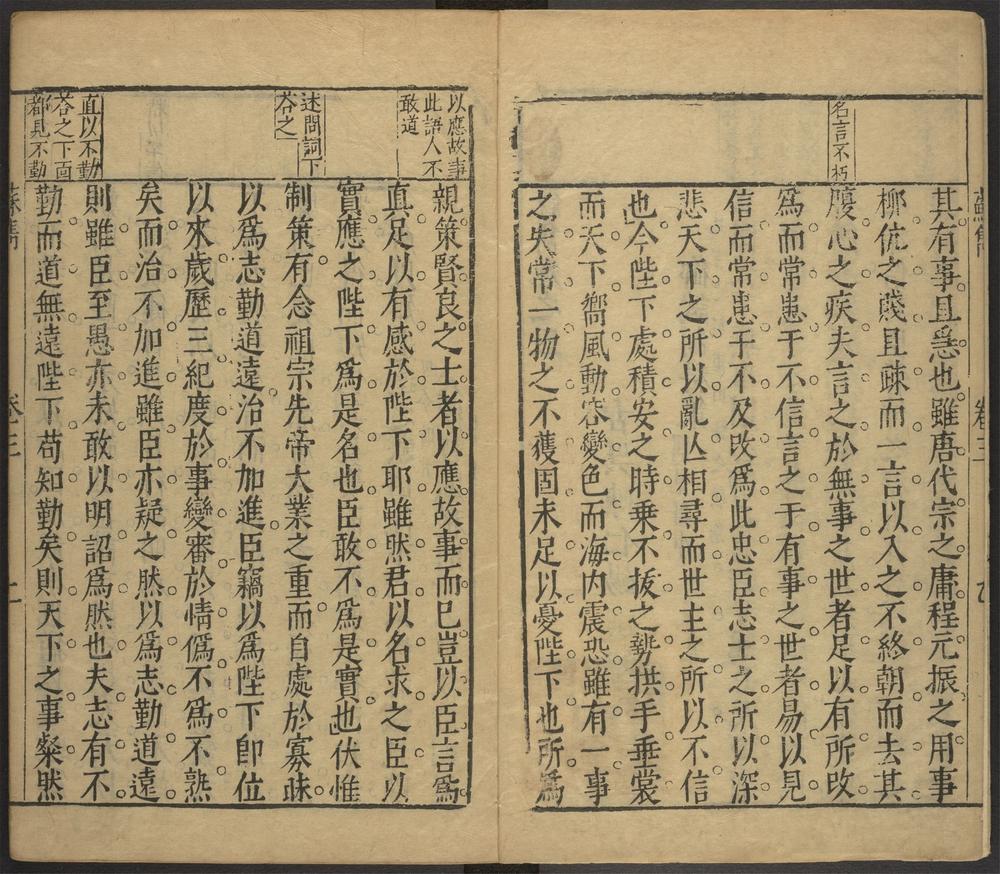 名言不朽
其有事且急也雖唐代宗之庸程元振之用事
柳伉之賤且疎而一言以入之不終朝而去其
腹心之疾夫言之於無事之世者足以有所改
爲而常患于不信言之于有事之世者易以見
信而常患于不及改爲此忠臣志士之所以深
悲天下之所以亂亡相尋而世主之所以不信
也今陛下處積安之時乗不拔之勢拱手垂裳
而天下嚮風動容變色而海内震恐雖有一事
之失常一物之不獲固未足以憂陛下也所爲
卷三
以應故事
此語人不
敢道
述問詞下
荅之
直以不勤
荅之下面
都見不勤
親策賢良之士者以應故事而已豈以臣言爲
真足以有感於陛下耶雖然君以名求之臣以
實應之陛下爲是名也臣敢不爲是實也伏惟
制策有念祖宗先帝大業之重而自處於寡昧
以爲志勤道遠治不加進臣竊以爲陛下卽位
以來歲歷三紀度於事變審於情僞不爲不熟
矣而治不加進雖臣亦疑之然以爲志勤道遠
則雖臣至愚亦未敢以明詔爲然也夫志有不
勤而道無遠陛下苟知勤矣則天下之事粲然